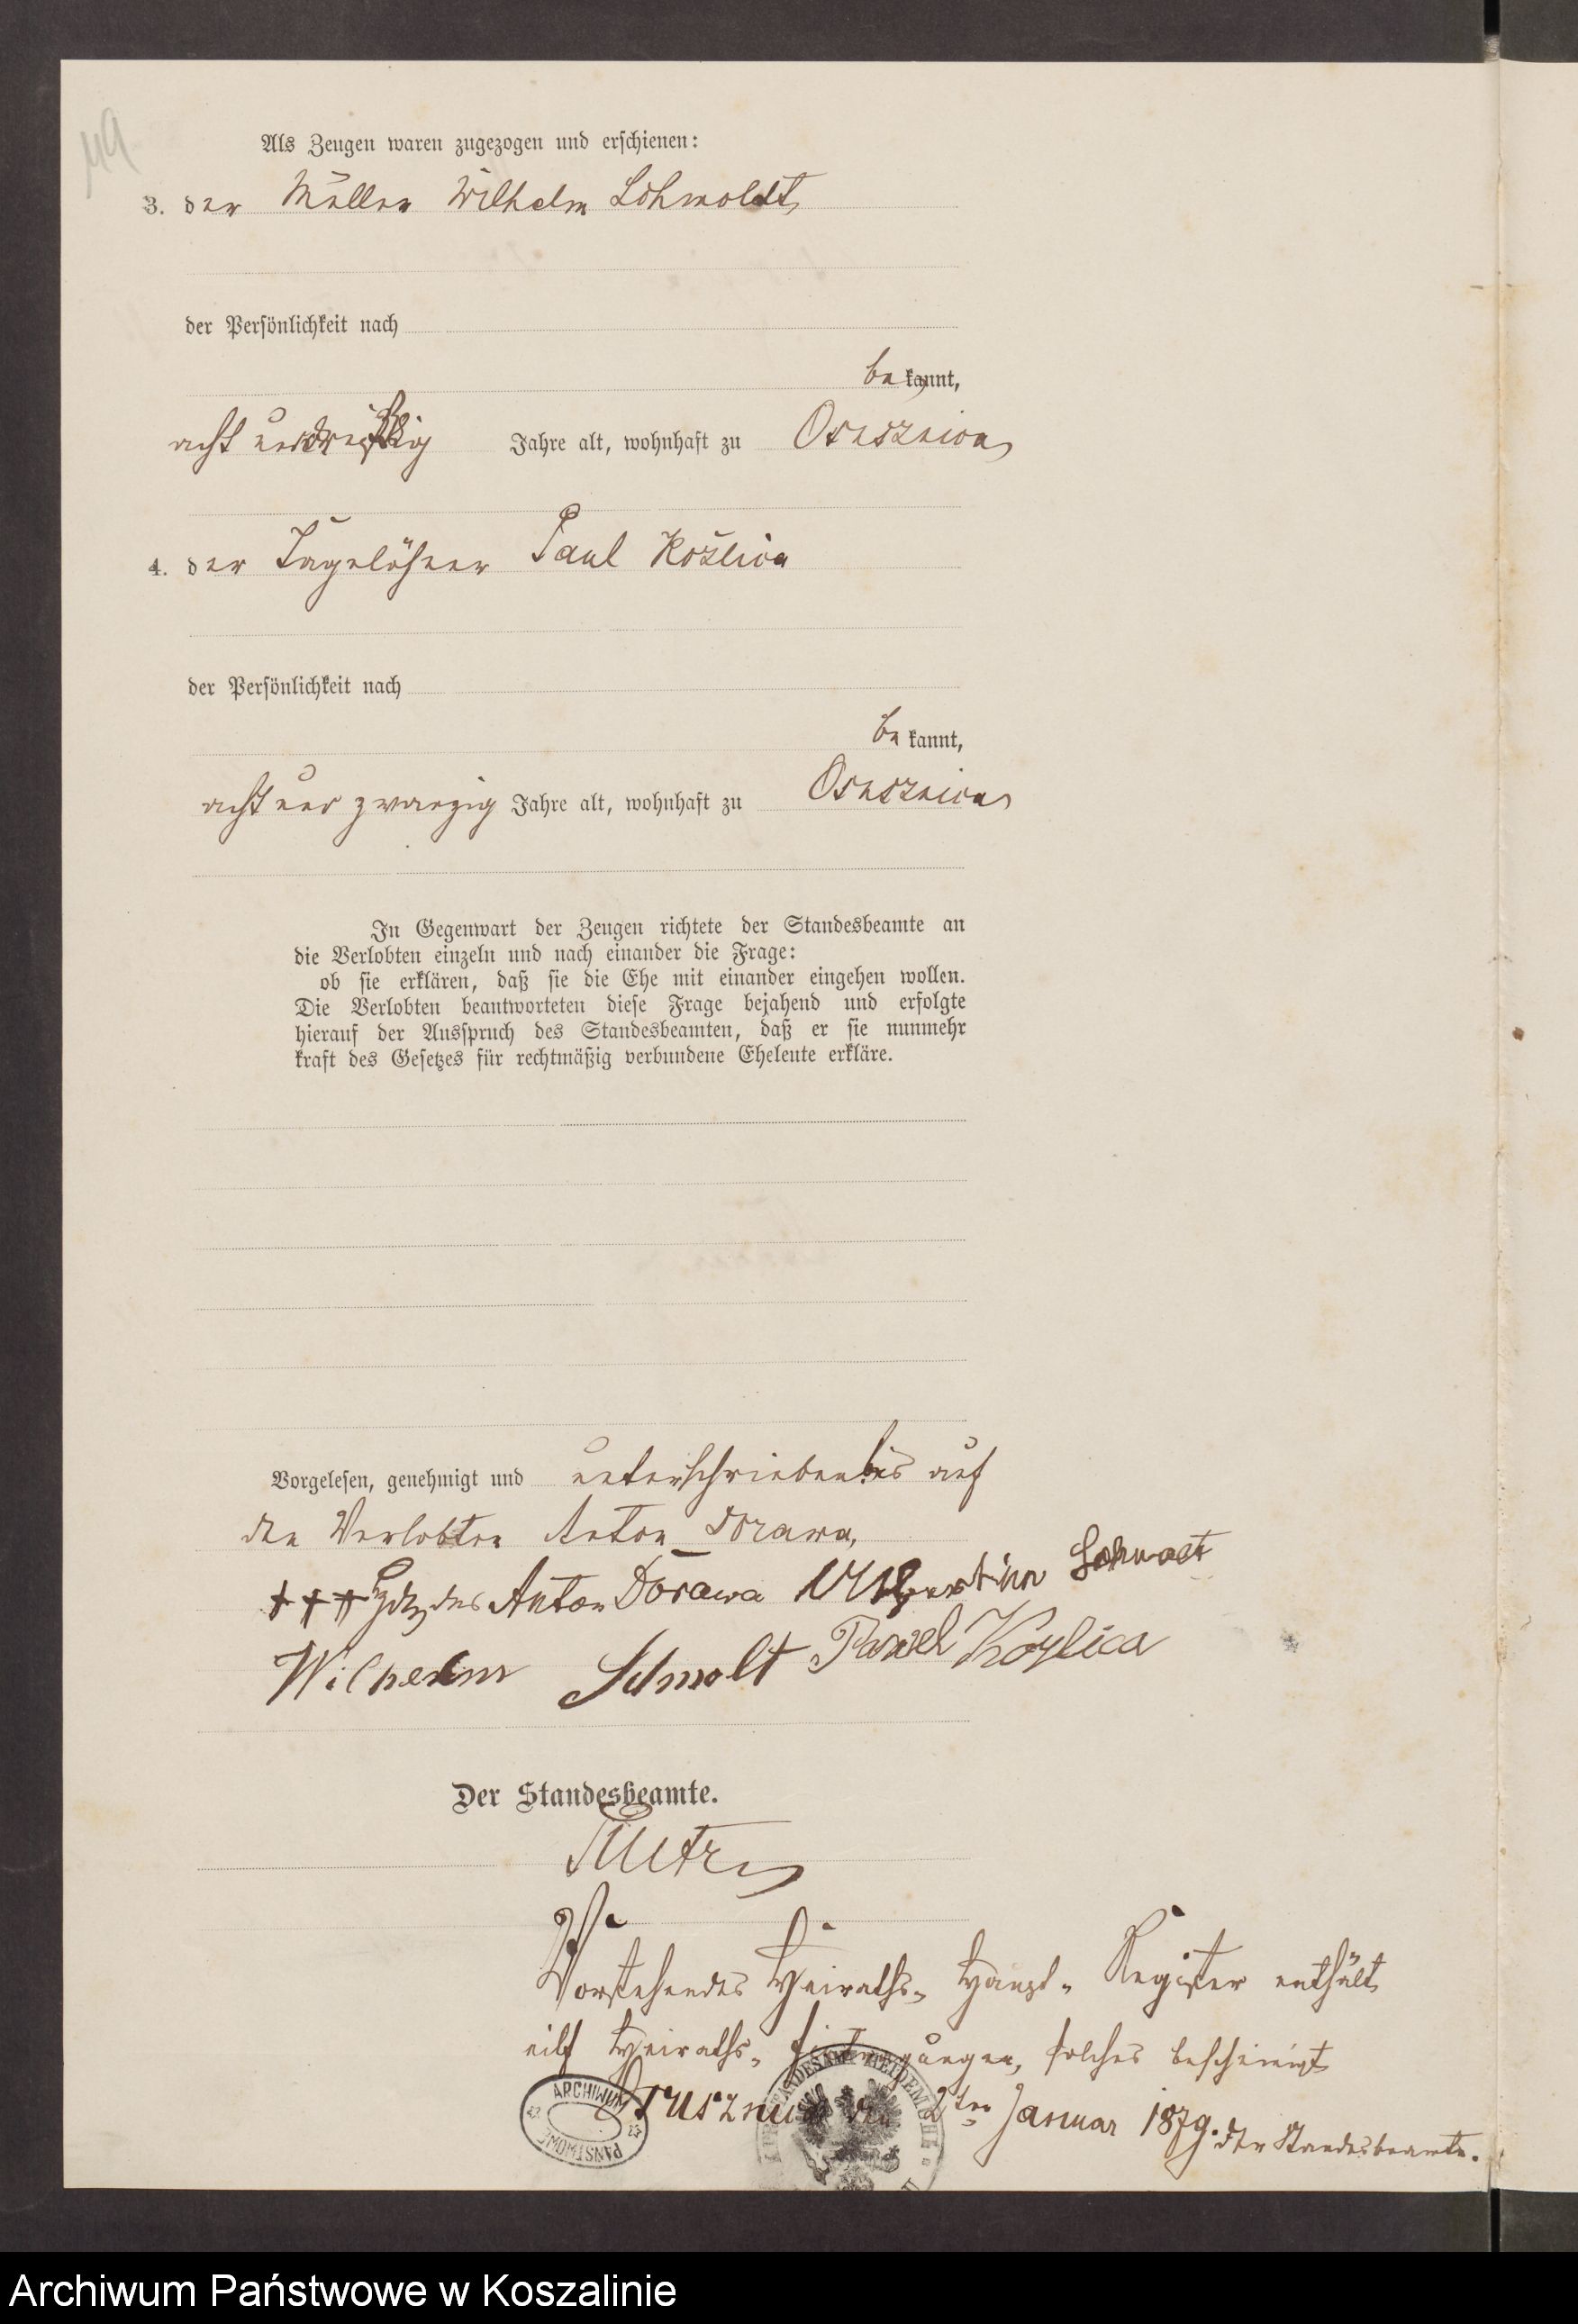 49
Als Zeugen waren zugezogen und erschienen:
3. der Müller Wilhelm Lohmoldt,
der Persönlichkeit nach
be kannt,
acht und dreißig Jahre alt, wohnhaft zu Osusznica
4. der Tagelöhner Paul Kozlica
der Persönlichkeit nach
be kannt,
acht und zwanzig Jahre alt, wohnhaft zu Osusznica
In Gegenwart der Zeugen richtete der Standesbeamte an
die Verlobten einzeln und nach einander die Frage:
ob sie erklären, daß sie die Ehe mit einander eingehen wollen.
Die Verlobten beantworteten diese Frage bejahend und erfolgte
hierauf der Ausspruch des Standesbeamten, daß er sie nunmehr
kraft des Gesetzes für rechtmäßig verbundene Eheleute erkläre.
Vorgelesen, genehmigt und unterschrieben bis auf
den Verlobten Anton Dorawa,
+++ Hdz des Anton Dorawa
Wilhelm Pawel Kozlica
Der Standesbeamte.
Vorstehendes Heiraths- Haupt- Register enthält
eilf Heiraths- Eintragungen, solches bescheinigt
den 2ten Januar 1879. Der Standesbeamte.
ARCHIWUM
PAŃSTWOWE
Archiwum Państwowe w Koszalinie